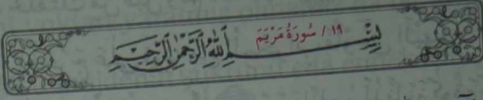 ١٩ / سُورَةُ مَرْيَمَ
بِسْمِ اللَّهِ الرَّحْمَٰنِ الرَّحِيمِ